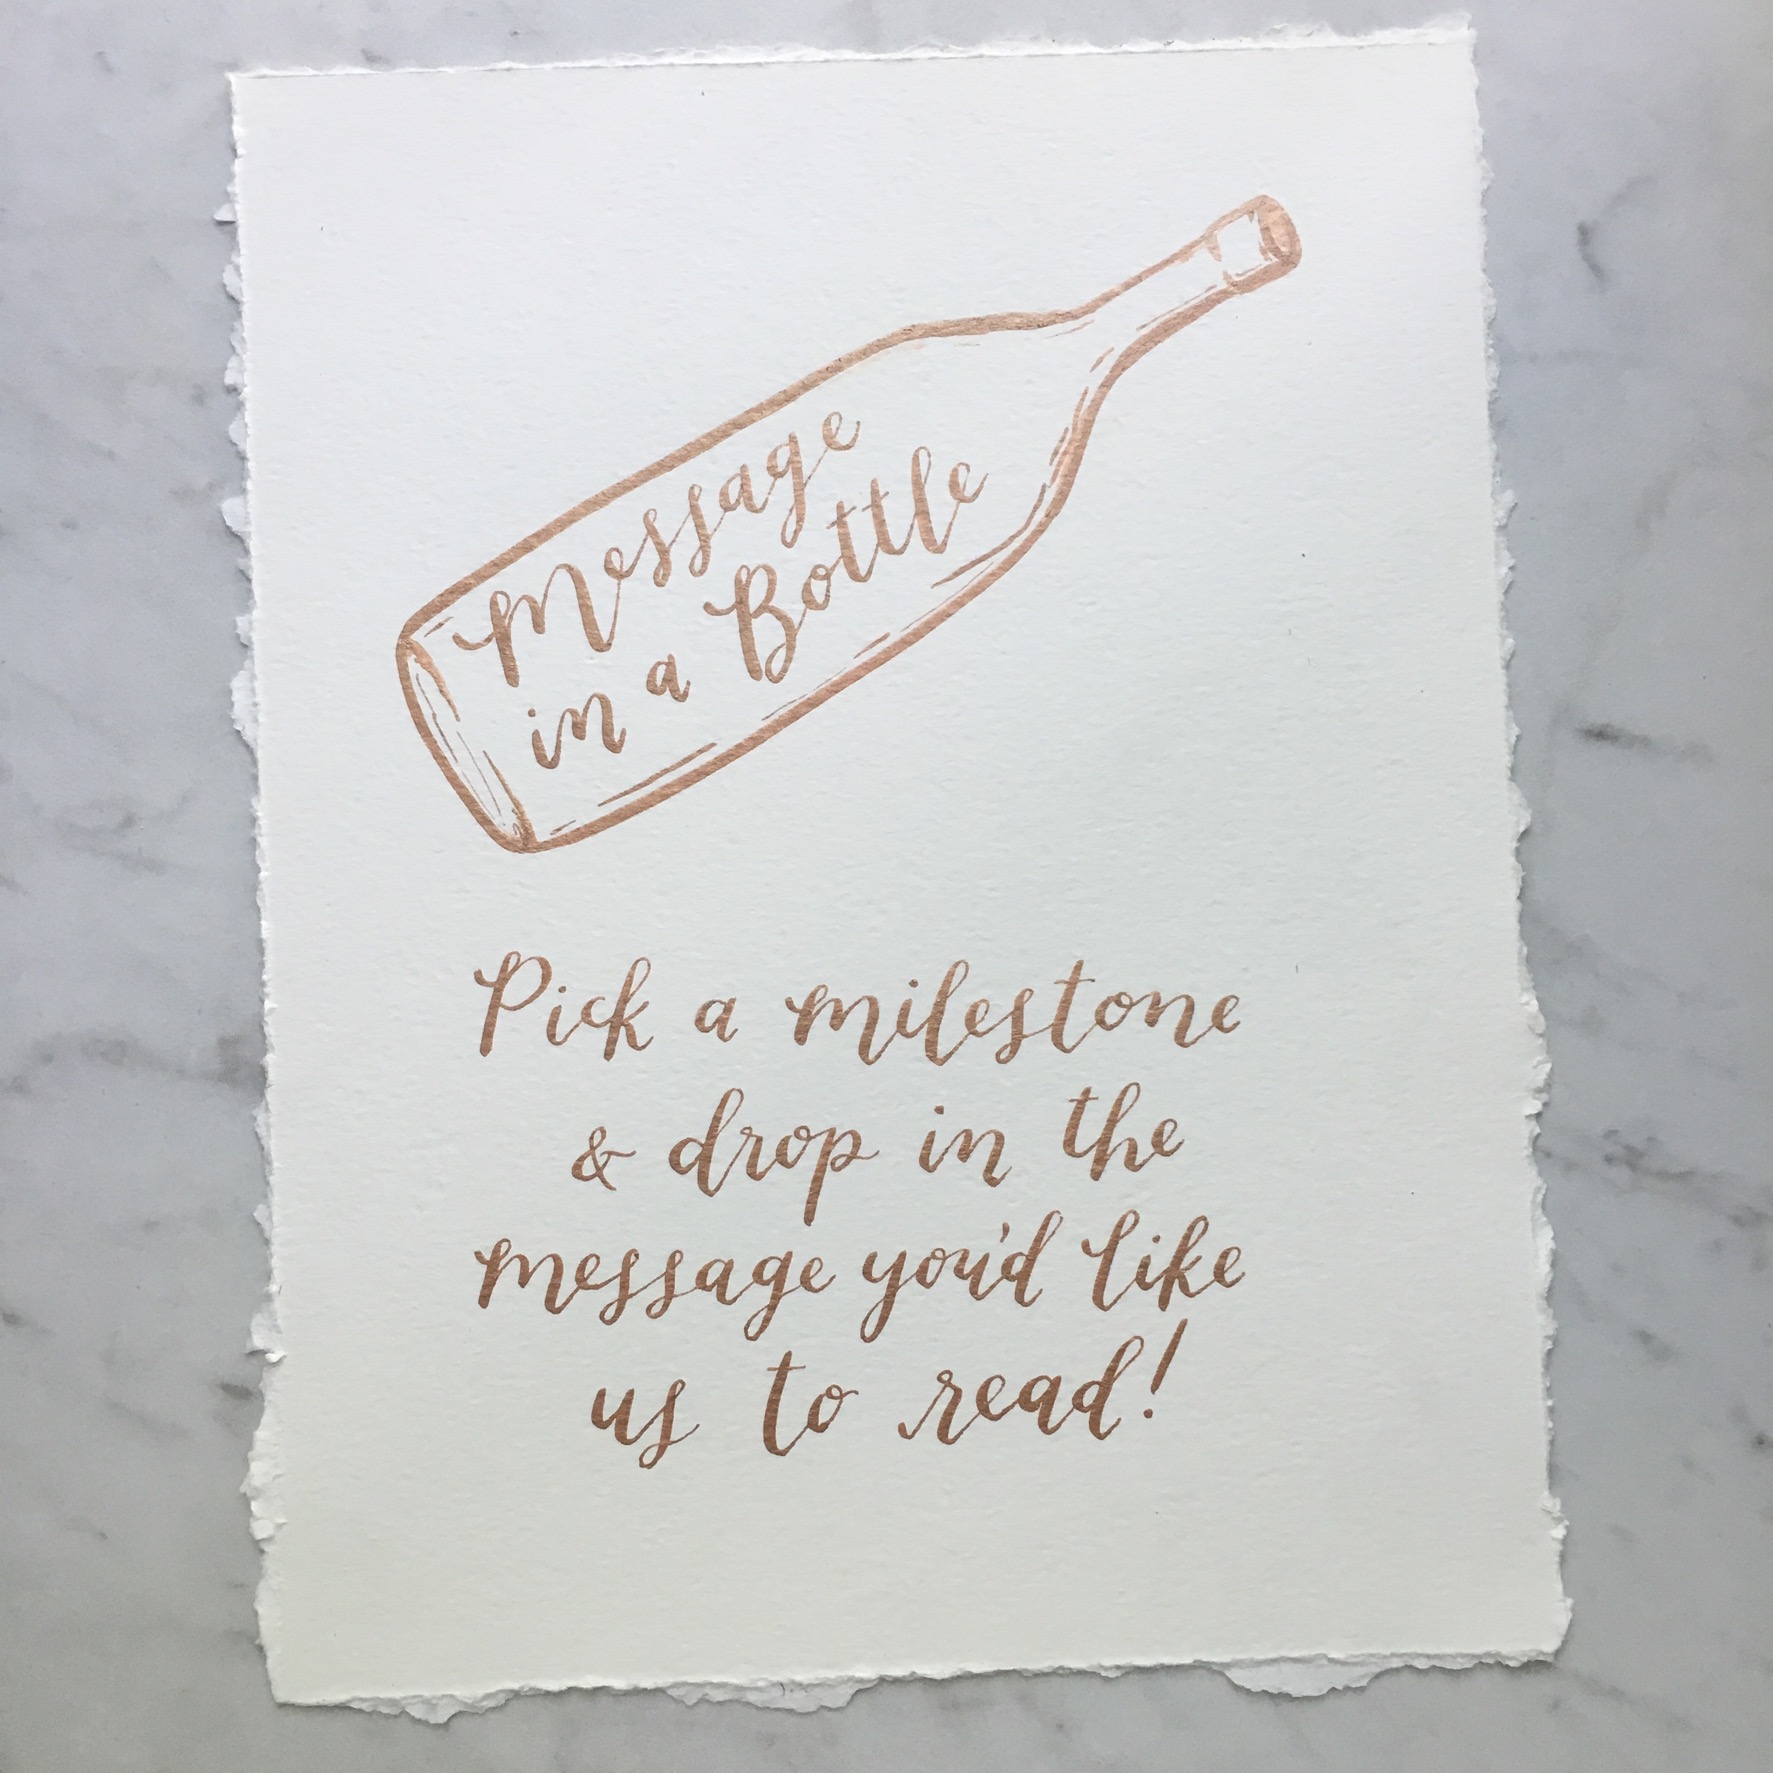 Message
in a Bottle
Pick a milestone
& drop in the
message you'd like
us to read!